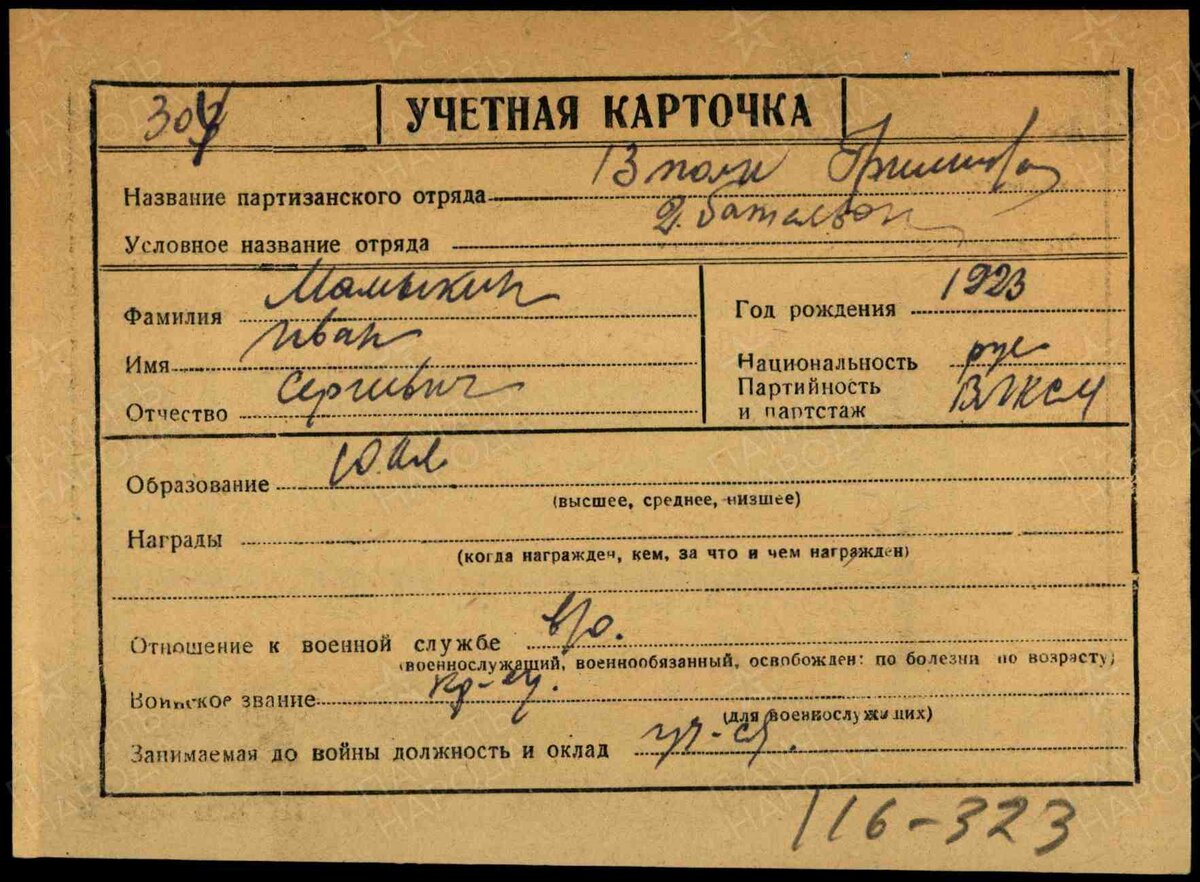 УЧЕТНАЯ КАРТОЧКА
Название партизанского отряда 13 полк Гришина
Условное название отряда 2. батальон
Фамилия Мамыкин
Имя Иван
Отчество Сергиевич
Год рождения 1923
Национальность рус
Партийность
и партстаж ВЛКСМ
Образование 10. кл
(высшее, среднее, низшее)
Награды
(когда награжден, кем, за что и чем награжден)
Отношение к военной службе в/о.
(военнослужащий, военнообязанный, освобожден: по болезни по возрасту)
Воинское звание
(для военнослужащих)
Занимаемая до войны должность и оклад
116-323
ПАМЯТЬ НАРОДА